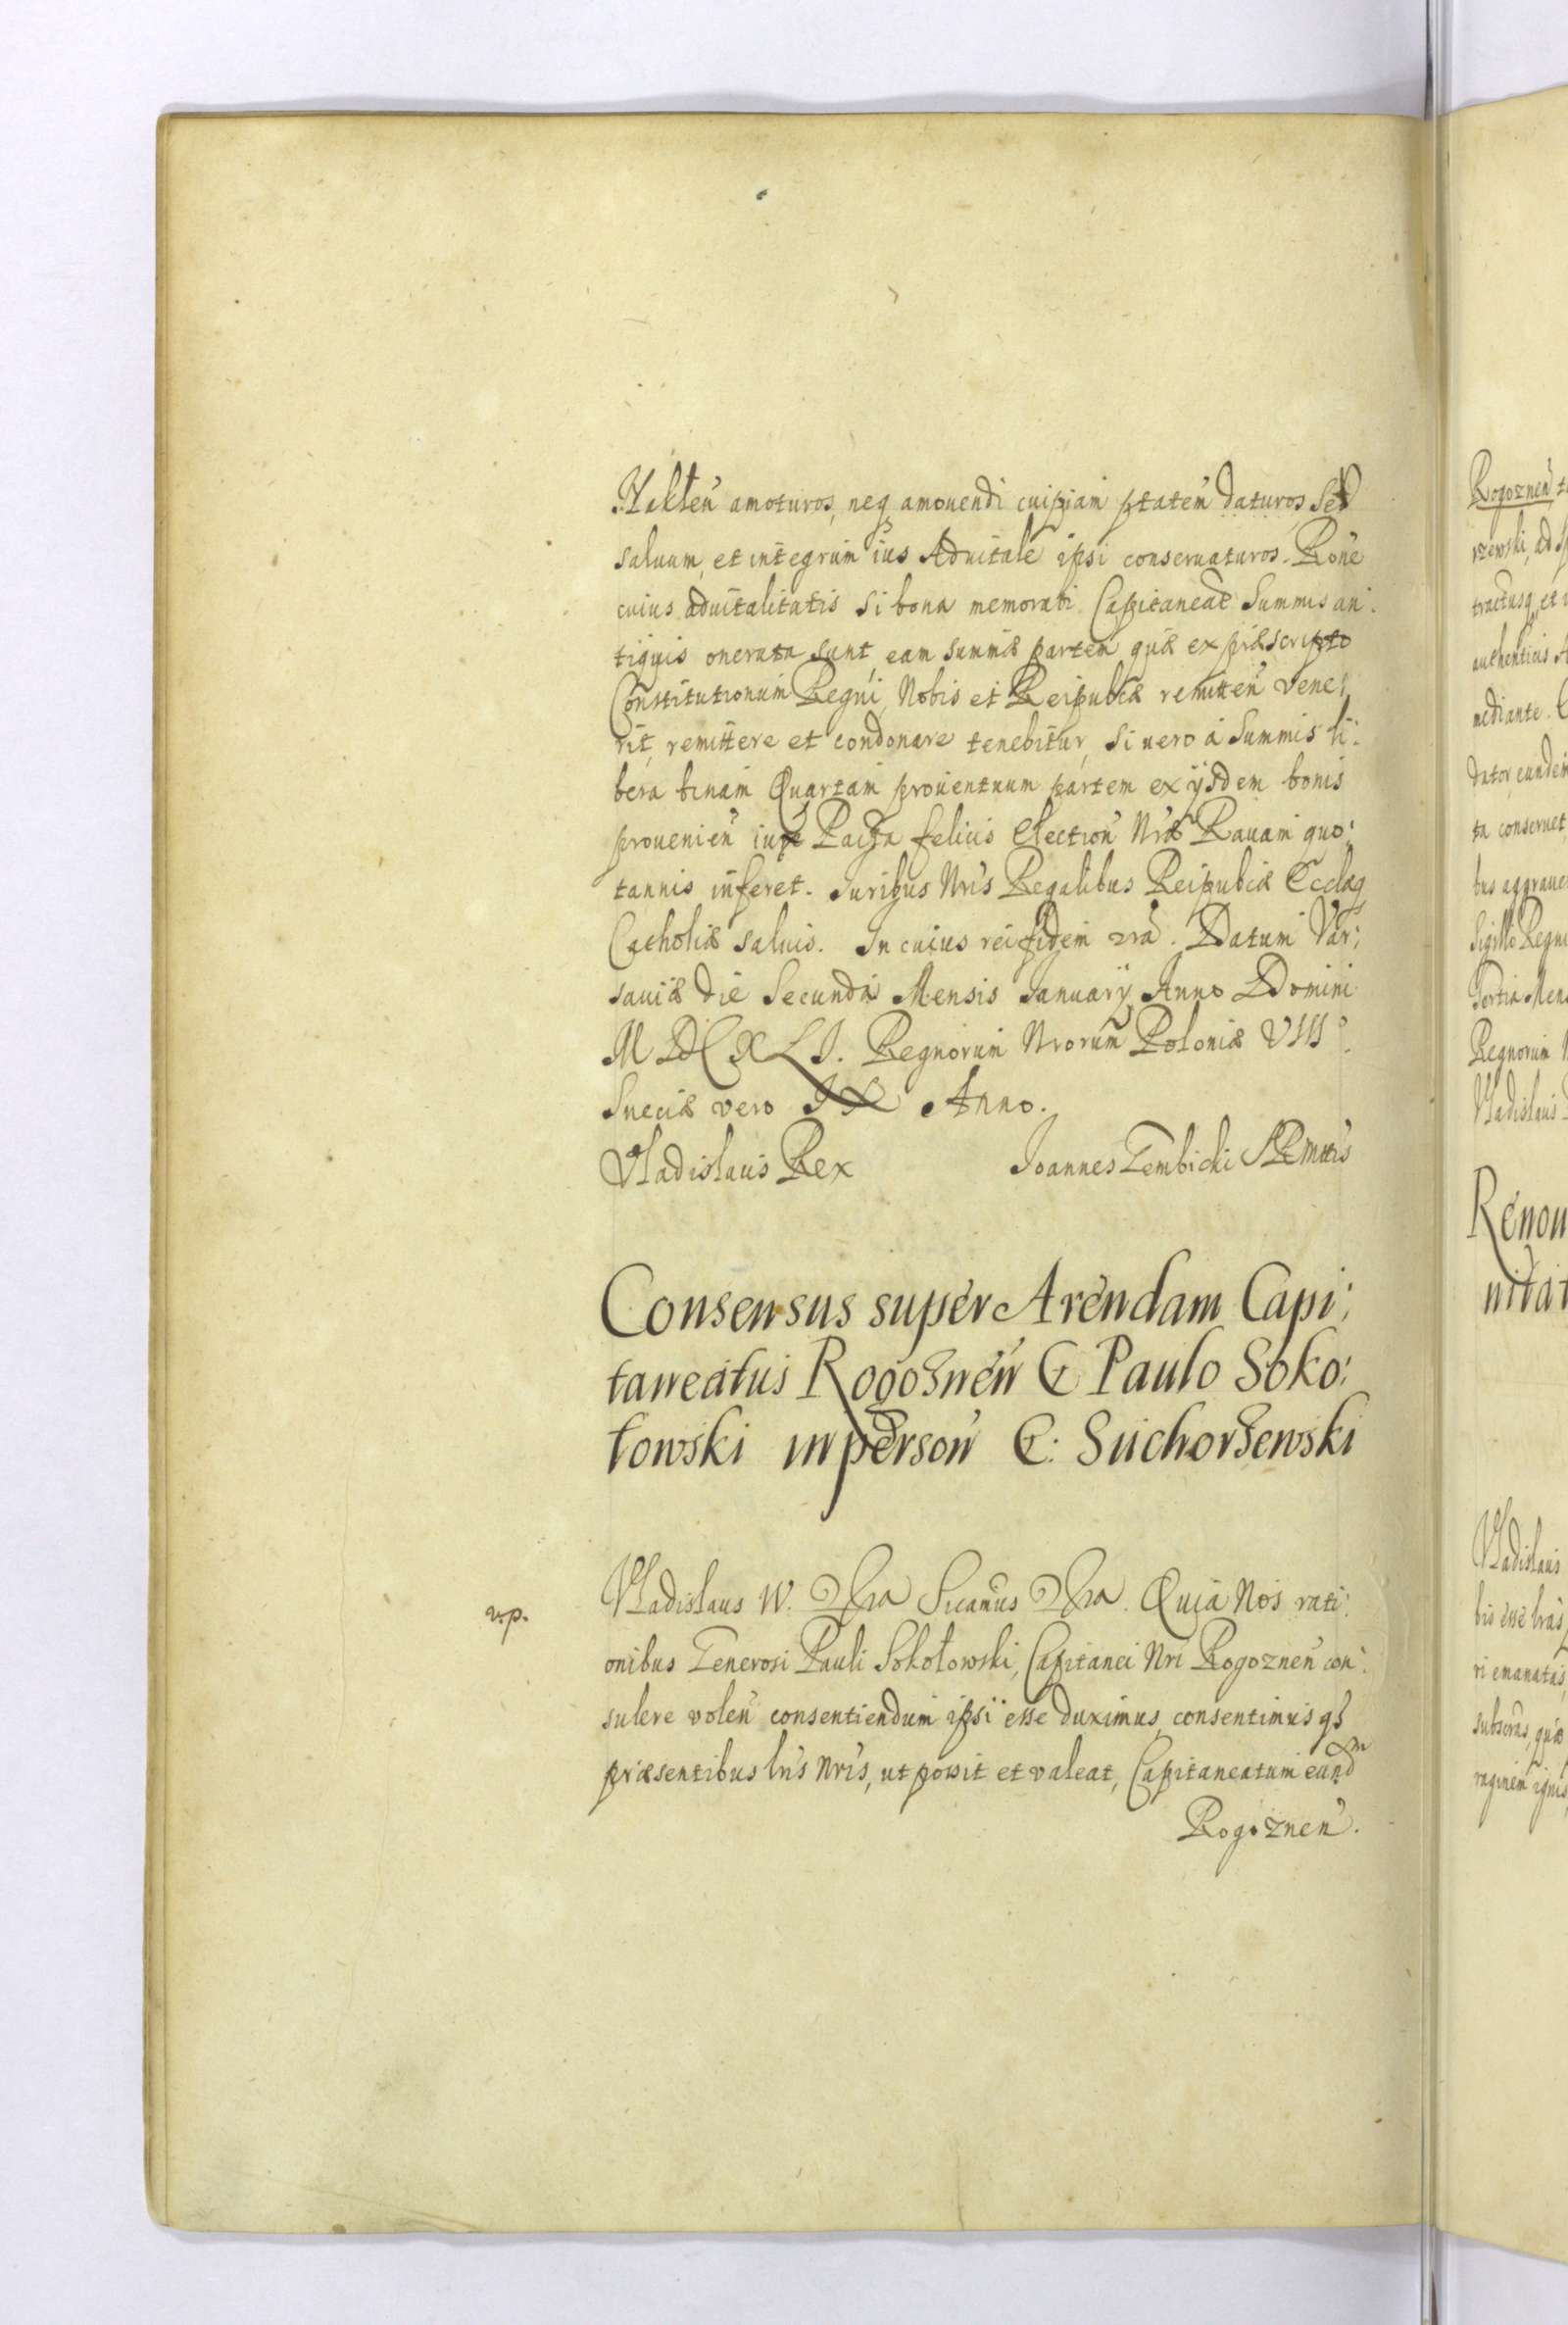 Halteń amoturos, neq amouendi cuipiam ptatem daturos, sed
saluum, et integrum ius Aduitale ipsi conseruaturos. Rone
cuius aduitalitatis si bona memorati Capitaneat Summis an:
tiquis onerata sunt, eam summæ partem quæ ex præscripto
Constitutionum Regni, Nobis et Reipublcæ remitteń vene:
rit, remittere et condonare tenebitur, si uero á Summis li:
bera binam Quartam prouentuum partem ex ijsdem bonis
prouenień iuxta Pacta felicis Electioń Nræ Rauam quo:
tannis inferet. Iuribus Nris Regalibus Reipubcæ Eccłæq
Catholcæ saluis. In cuius rei fidem &ra. Datum Var:
sauiæ die Secunda Mensis Ianuarij Anno Domini
MDCXLI. Regnorum Nrorum Poloniæ VIII°
Sueciæ vero IX Anno.
Vladislaus Rex Joannes Gembicki
Consensus super Arendam Capi:
taneatus Rogozneń G Paulo Soko:
łowski in persoń G: Suchorzewski
Vladislaus IV. &ra Sicamus &ra. Quia Nos rati:
onibus Generosi Pauli Sokołowski, Capitanei Nri Rogozneń con:
sulere voleń consentiendum ipsi esse duximus, consentimusqȝ
præsentibus lris Nris, ut possit et valeat, Capitaneatum eundm
Rogozneń.
Rogozneń
rzewski, ad
tractusq, et
authenticis
mediante.
dator eundem
ta conseruet
bus aggraue
Sigillo Regni
Tertia Mens
Regnorum
Vladislaus
Renou
nitat
Vladislaus
bis esse lras
ri emanatas,
subscras, quæ
raginem ignis